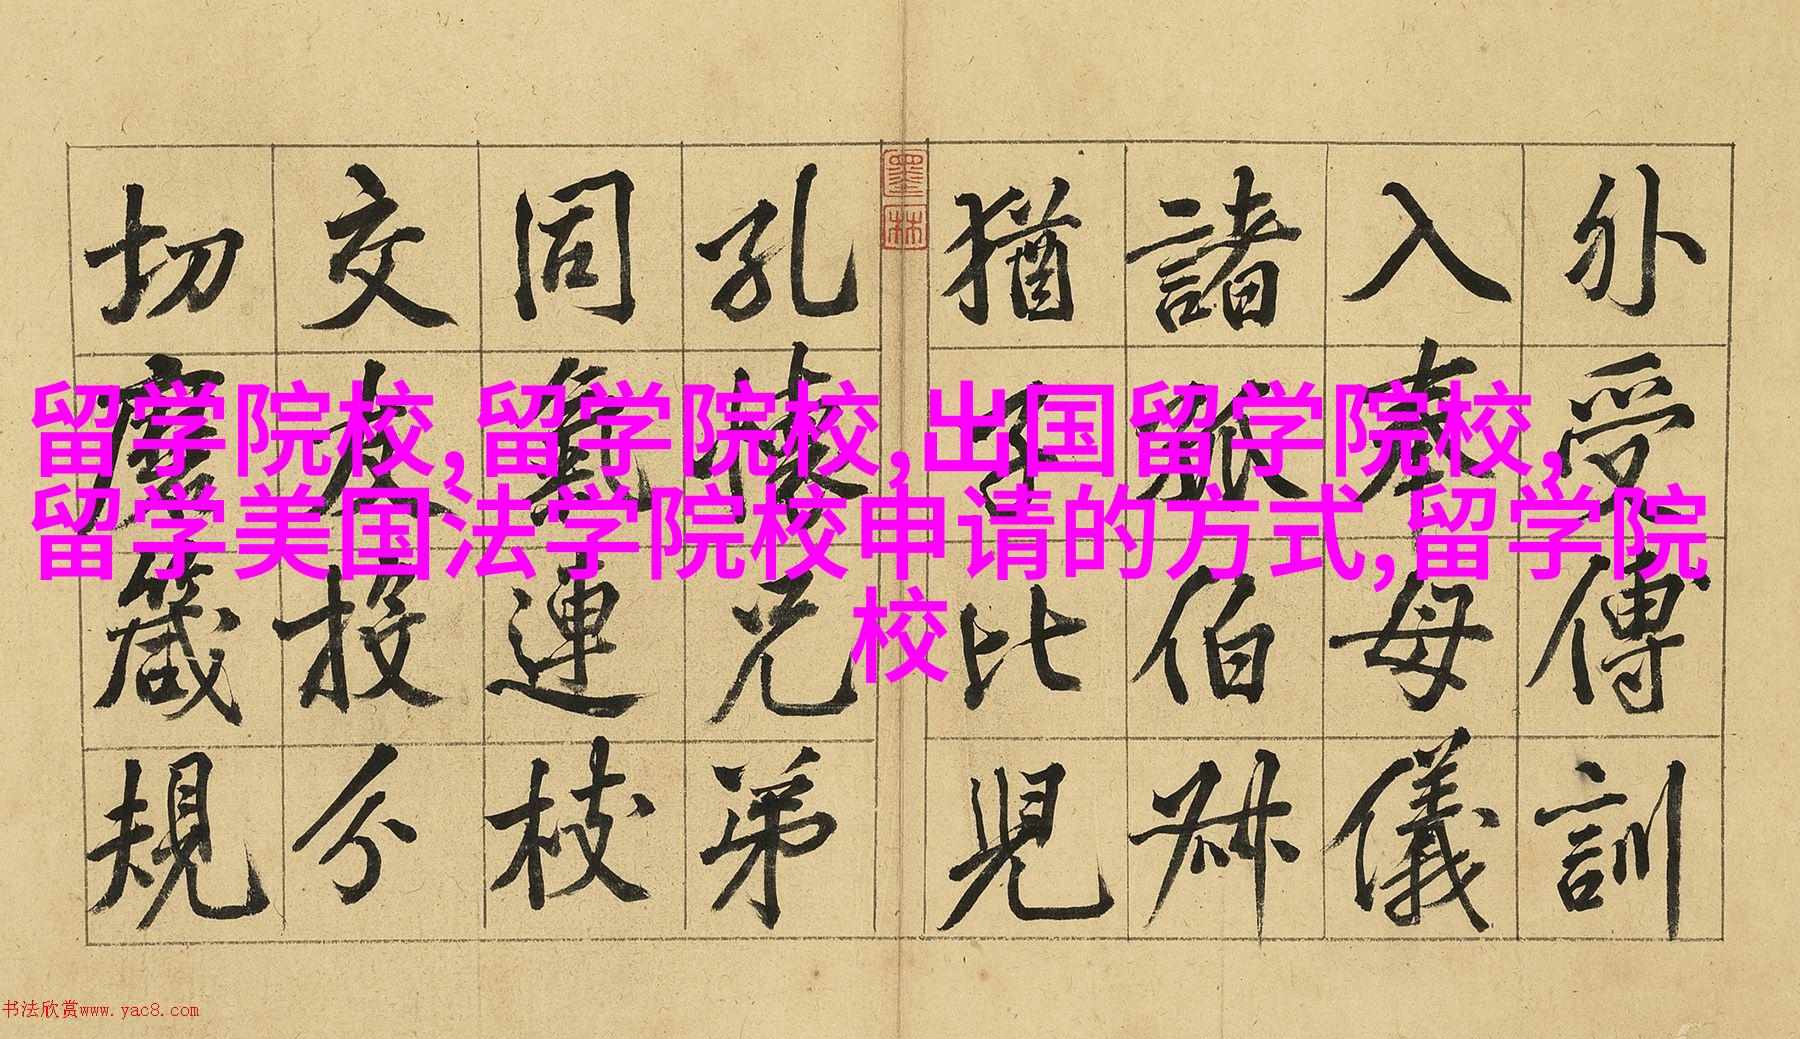 外受傅訓
入奉母儀
諸姑伯叔
猶子比兒
墨林
孔懷兄弟
同氣連枝
交友投分
切磨箴規
留学院校,留学院校,出国留学院校,
留学美国法学院校申请的方式,留学院
校
书法欣赏www.yac8.com